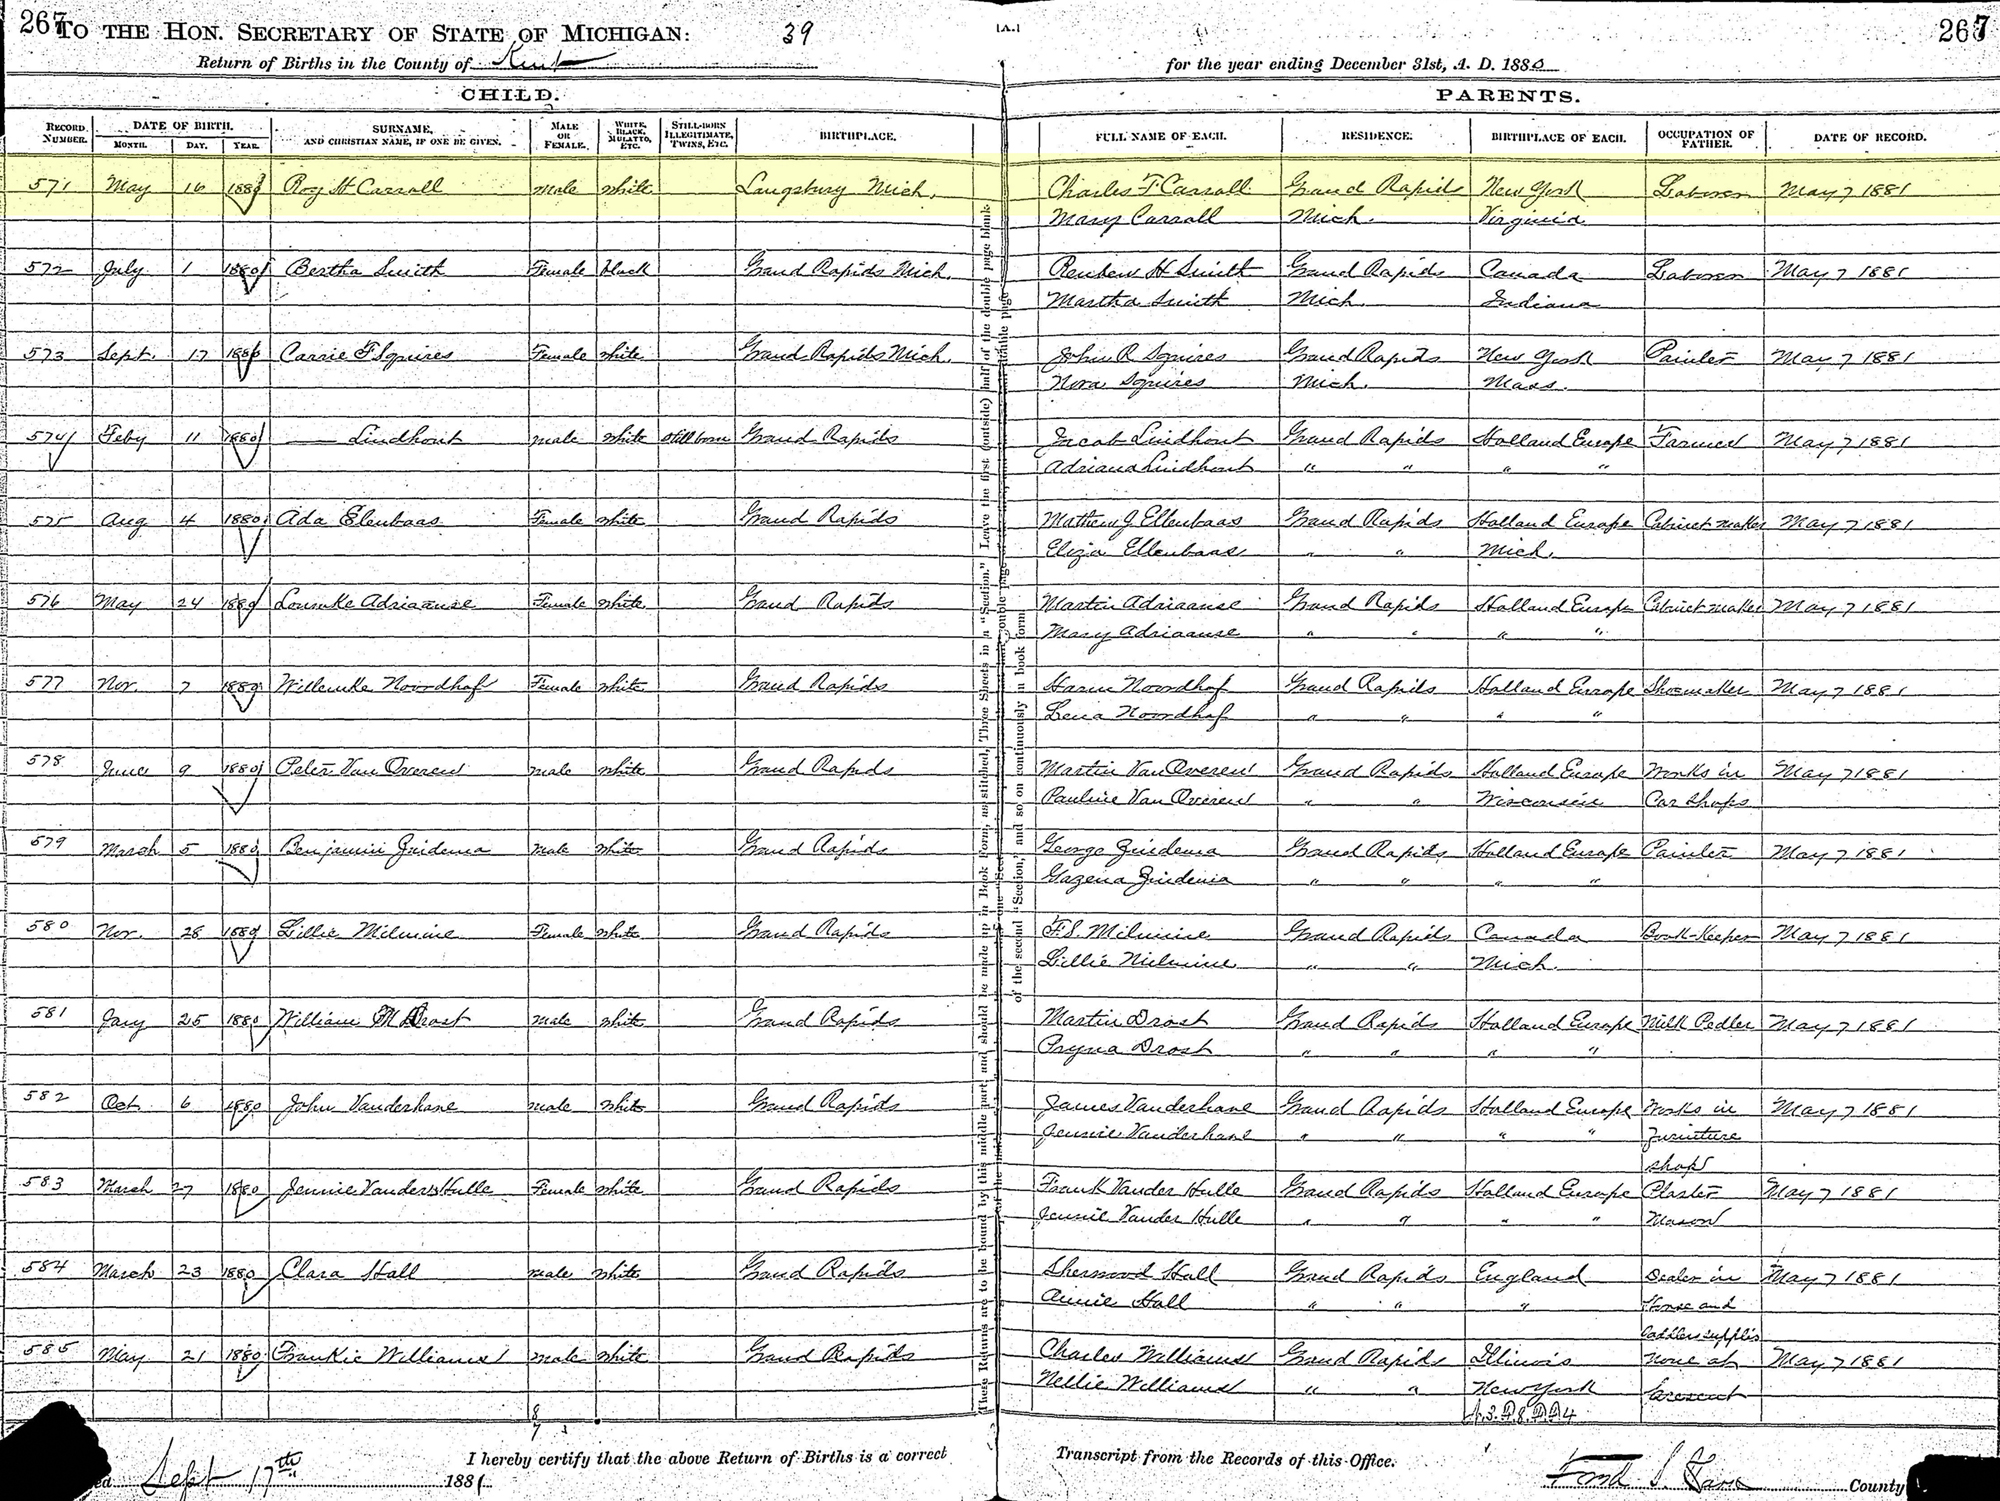 267 TO THE HON. SECRETARY OF STATE OF MICHIGAN: 39 [A.] 267
Return of Births in the County of Kent for the year ending December 31st, A. D. 1880
CHILD. PARENTS.
RECORD NUMBER. DATE OF BIRTH. MONTH. DAY. YEAR. SURNAME, AND CHRISTIAN NAME, IF ONE BE GIVEN. MALE OR FEMALE. WHITE, BLACK, MULATTO, ETC. STILL-BORN ILLEGITIMATE, TWINS, ETC. BIRTHPLACE. FULL NAME OF EACH. RESIDENCE. BIRTHPLACE OF EACH. OCCUPATION OF FATHER. DATE OF RECORD.
571 May 16 1880 Roy H Carroll male white Laingsburg Mich. Charles F. Carroll Grand Rapids New York Laborer May 7 1881
Mary Carroll Mich. Virginia
572 July 1 1880 Bertha Smith Female black Grand Rapids Mich. Reuben H Smith Grand Rapids Canada Laborer May 7 1881
Martha Smith Mich. Indiana
573 Sept. 17 1880 Carrie F Squires Female white Grand Rapids Mich. John R Squires Grand Rapids New York Painter May 7 1881
Nora Squires Mich. Mass.
574 Feby 11 1880 — Lindhout male white still born Grand Rapids Jacob Lindhout Grand Rapids Holland Europe Farmer May 7 1881
Adriana Lindhout " " " "
575 Aug 4 1880 Ada Elenbaas Female white Grand Rapids Mathew J Ellenbaas Grand Rapids Holland Europe Cabinet maker May 7 1881
Eliza Ellenbaas " " Mich.
576 May 24 1880 Adriaanse Female white Grand Rapids Martin Adriaanse Grand Rapids Holland Europe Cabinet maker May 7 1881
Mary Adriaanse " " " "
577 Nov. 7 1880 Willemke Noordhof Female white Grand Rapids Harm Noordhof Grand Rapids Holland Europe Shoemaker May 7 1881
Lena Noordhof " " " "
578 June 9 1880 Peter Van Overen male white Grand Rapids Martin Van Overen Grand Rapids Holland Europe Works in May 7 1881
Pauline Van Overen " " Wisconsin Car Shops
579 March 5 1880 Benjamin Zuidema male white Grand Rapids George Zuidema Grand Rapids Holland Europe Painter May 7 1881
Gazena Zuidema " " " "
580 Nov. 28 1880 Lillie Milmine Female white Grand Rapids F. S. Milmine Grand Rapids Canada Book-Keeper May 7 1881
Lillie Milmine " " Mich.
581 Jany 25 1880 William M Drost male white Grand Rapids Martin Drost Grand Rapids Holland Europe Milk Pedler May 7 1881
Pryna Drost " " " "
582 Oct 6 1880 John Vanderhane male white Grand Rapids James Vanderhane Grand Rapids Holland Europe Works in May 7 1881
Jennie Vanderhane " " " " Furniture
shop
583 March 27 1880 Jennie Vander Hulle Female white Grand Rapids Frank Vander Hulle Grand Rapids Holland Europe Plaster May 7 1881
Jennie Vander Hulle " " " " Mason
584 March 23 1880 Clara Hall male white Grand Rapids Sherwood Hall Grand Rapids England Dealer in May 7 1881
Annie Hall " " " Horse and
Saddlers supplies
585 May 21 1880 Frankie Williams male white Grand Rapids Charles Williams Grand Rapids Illinois none at May 7 1881
Nellie Williams " " New York present
These Returns are to be bound by this middle part and should be made up in Book Form, as stitched, Three Sheets in a "Section." Leave the first (outside) half of the double page blank
of the second "Section," and so on continuously in book form
I hereby certify that the above Return of Births is a correct Transcript from the Records of this Office.
Sept 17th 1881 County